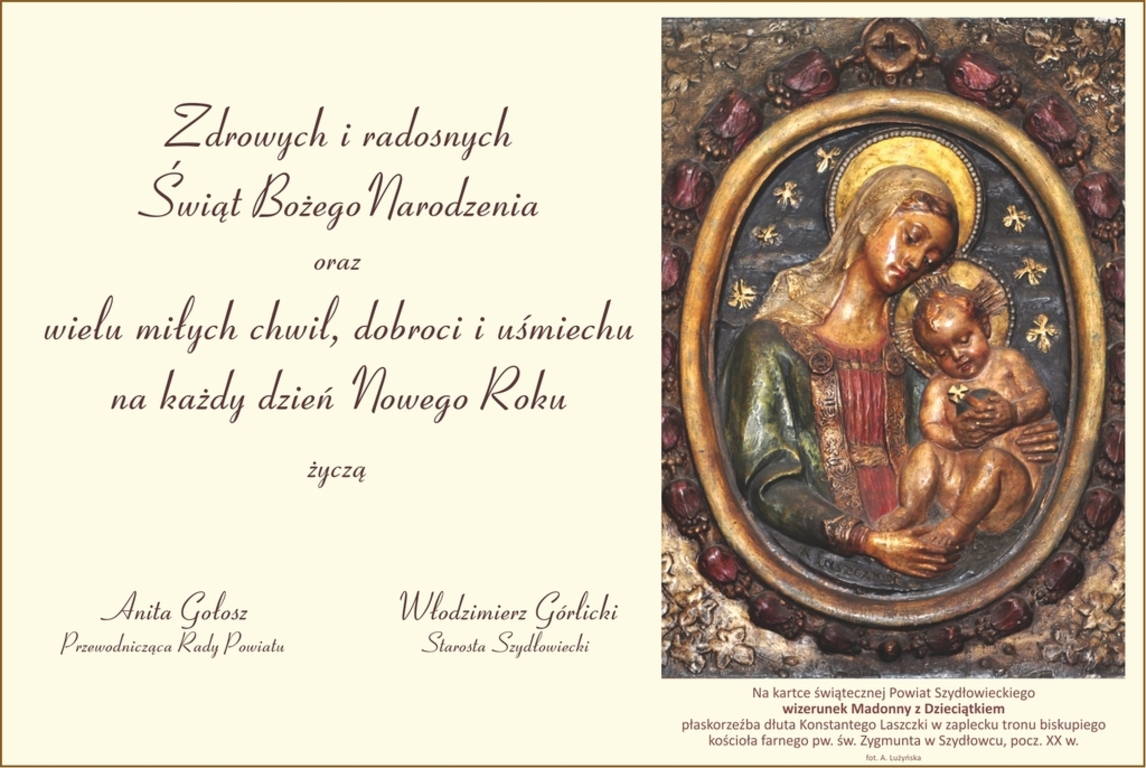 Zdrowych i radosnych
Świąt Bożego Narodzenia
oraz
wielu miłych chwil, dobroci i uśmiechu
na każdy dzień Nowego Roku
życzą
Anita Gołosz
Przewodnicząca Rady Powiatu
Włodzimierz Górlicki
Starosta Szydłowiecki
Na kartce świątecznej Powiat Szydłowieckiego
wizerunek Madonny z Dzieciątkiem
płaskorzeźba dłuta Konstantego Laszczki w zaplecku tronu biskupiego
kościoła farnego pw. św. Zygmunta w Szydłowcu, pocz. XX w.
fot. A. Lużyńska